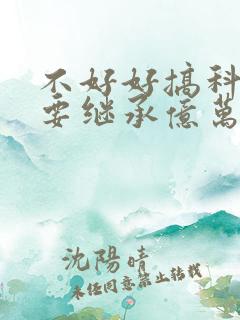 不好好搞科
要继承億萬
沈陽晴
未经同意禁止转载